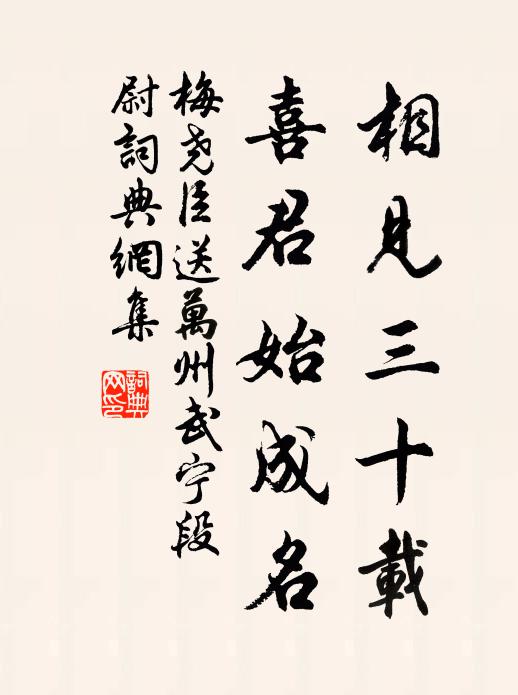 相見三十載
喜君始成名
梅堯臣送萬州武宁段
尉詞典網集
詞典网印